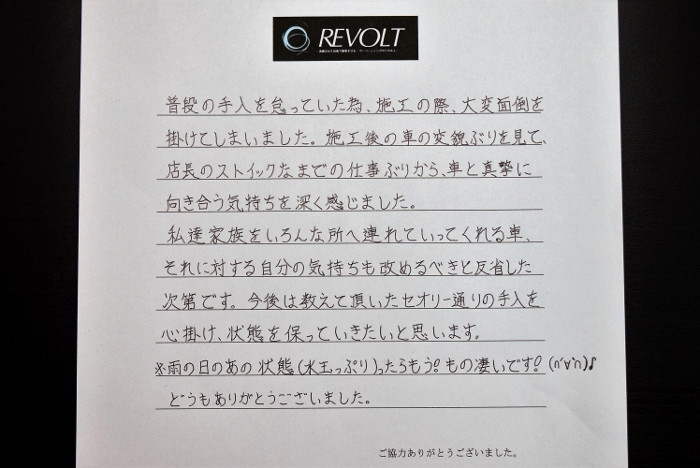 REVOLT
普段の手入を怠っていた為、施工の際、大変面倒を
掛けてしまいました。施工後の車の変貌ぶりを見て、
店長のストイックなまでの仕事ぶりから、車と真摯に
向き合う気持ちを深く感じました。
私達家族をいろんな所へ連れていってくれる車、
それに対する自分の気持ちも改めるべきと反省した
次第です。今後は教えて頂いたセオリー通りの手入を
心掛け、状態を保っていきたいと思います。
※雨の日のあの状態(水玉っぷり)ったらもう!もの凄いです!(n'∀'n)♪
どうもありがとうございました。
ご協力ありがとうございました。